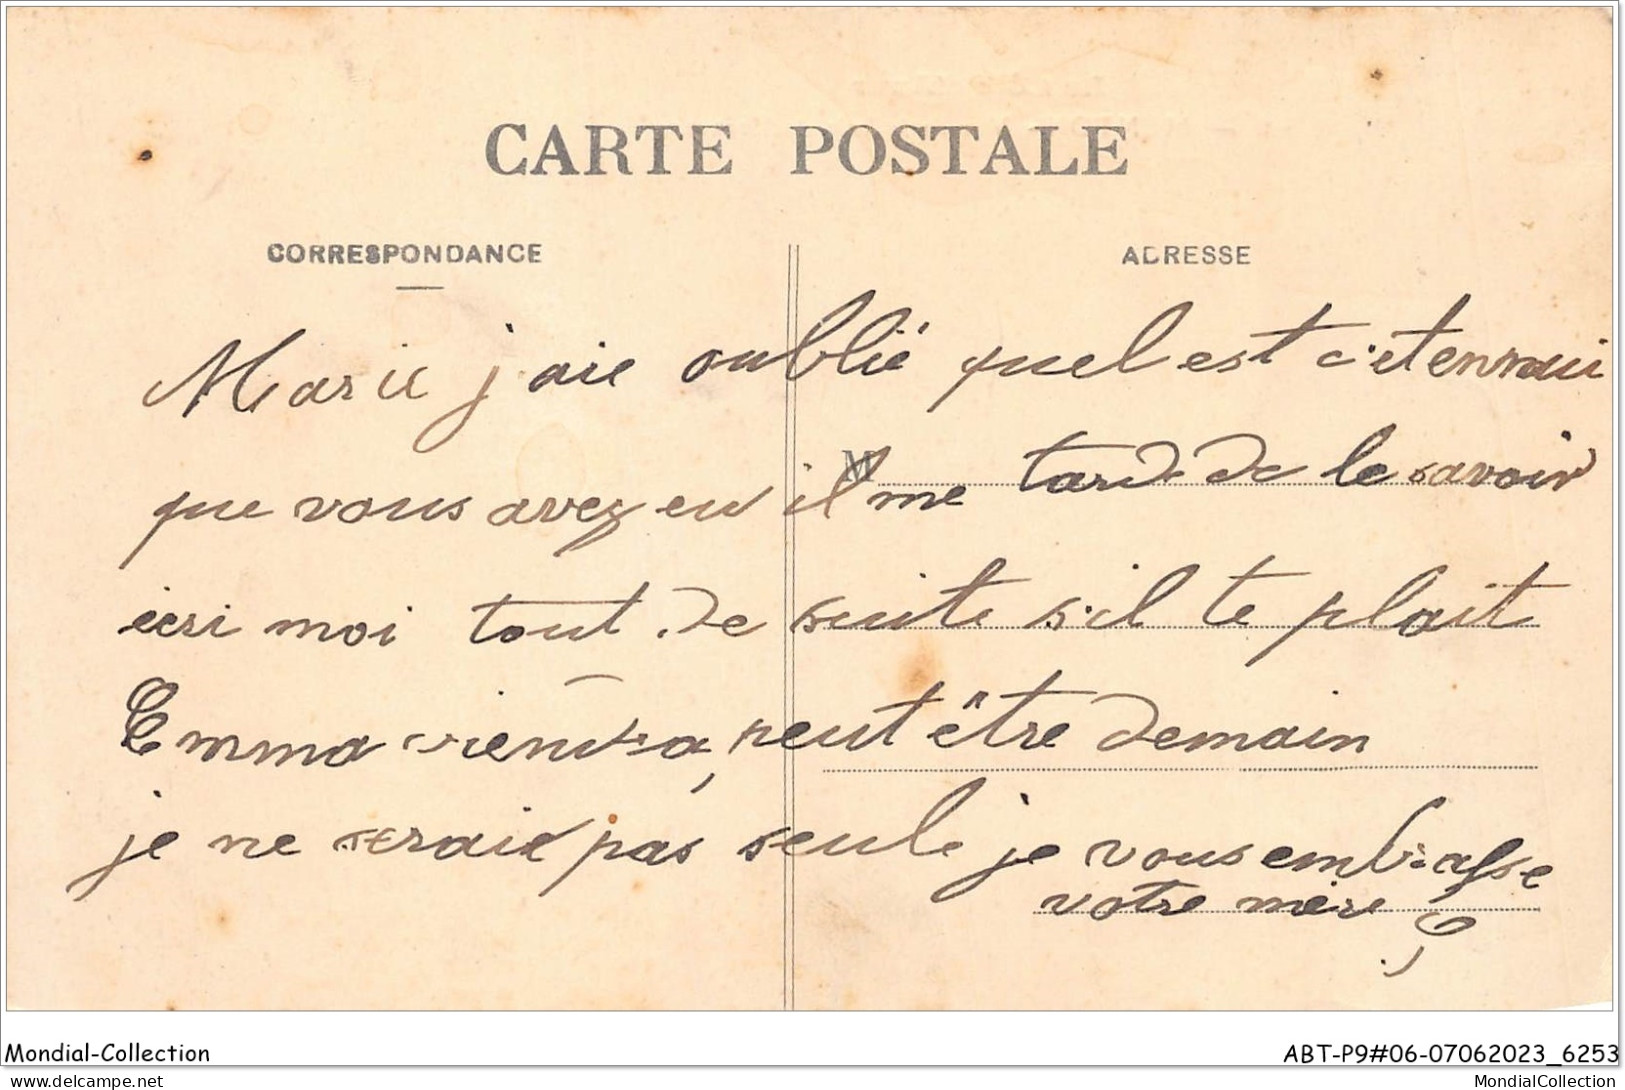 CARTE POSTALE
CORRESPONDANCE
ADRESSE
Marie j aie oublié quel est c'etennui
que vous avez eu il me tarde de le savoir
M
écri moi tout de suite s'il te plait
Emma viendra, peut être demain
je ne seraie pas seule je vous embrasse
votre mère
Mondial-Collection
ABT-P9#06-07062023_6253
delcampe.net
MondialCollection